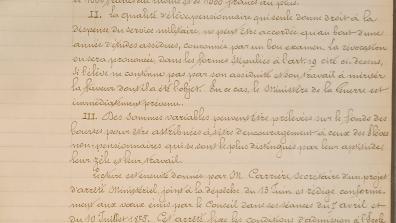 II. La qualité d'élève pensionnaire qui seule donne droit à la
dispense du service militaire, ne peut être accordée qu'au bout d'une
année d'études assidues, couronnée par un bon examen. La révocation
en sera prononcée, dans les formes stipulées à l'art. 19 ci-dessus,
si l'élève ne continue pas par son assiduité et son travail à mériter
la faveur dont il a été l'objet. En ce cas, le Ministère de la Guerre est
immédiatement prévenu.
III. Des sommes variables peuvent être prélevées sur le fonds des
bourses pour être attribuées à titre d'encouragement à ceux des élèves
non-pensionnaires qui se sont le plus distingués par leur assiduité,
leur zèle et leur travail.
Lecture est ensuite donnée par M. Carrière, secrétaire d'un projet
d'arrêté Ministériel joint à la dépêche du 13 Juin et rédigé conformé-
ment aux vœux émis par le Conseil dans ses séances du 7 avril et
du 10 Juillet Cet arrêté fixe les conditions d'admission à l'École